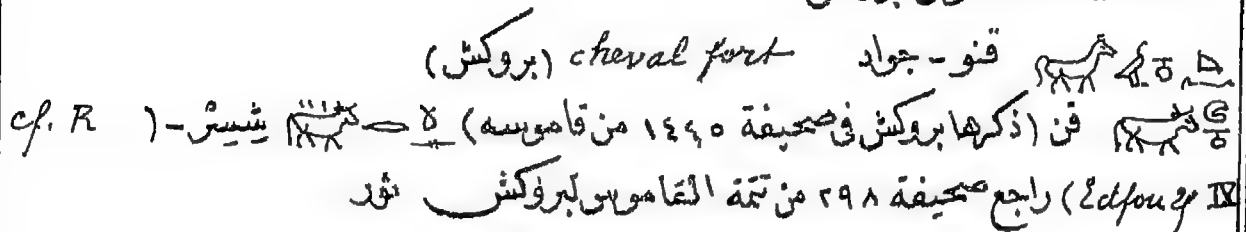 قنو - جواد cheval fort (بروكش)
قن (ذكرها بروكش في صحيفة ١٤٤٥ من قاموسه) شيسر - ( cf. R
IV Edfou) راجع صحيفة ٢٩٨ من تتمة القاموس لبروكش ثور